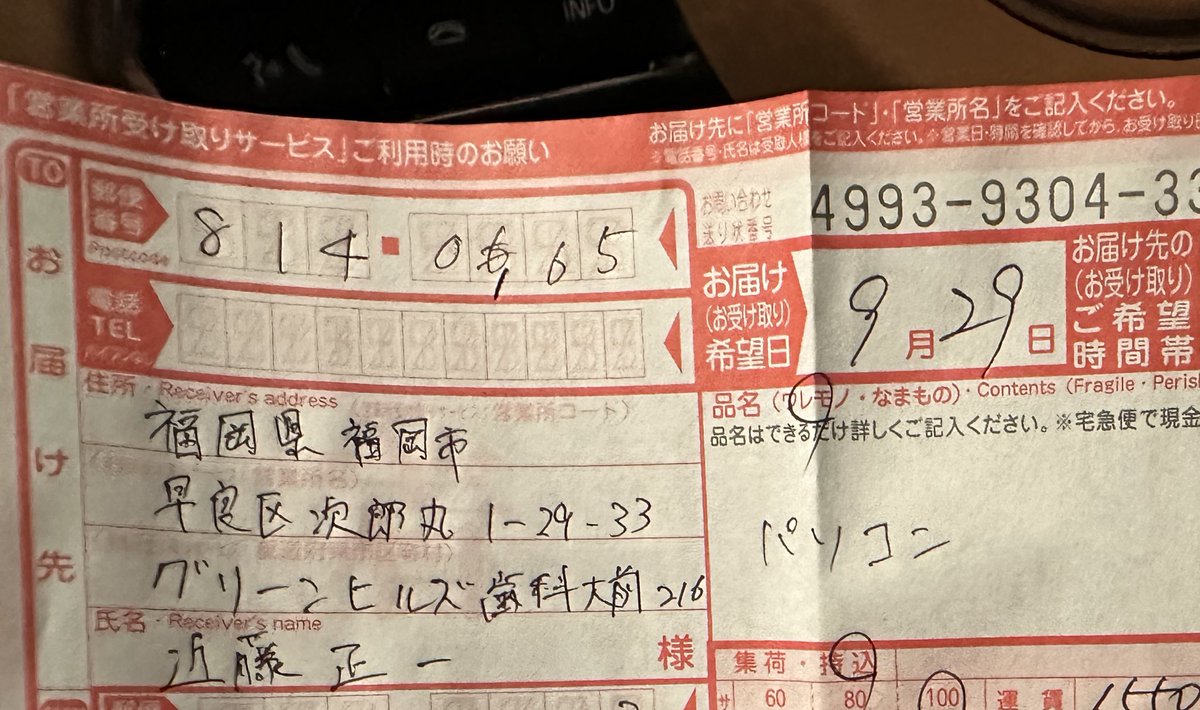 INFO
「営業所受け取りサービス」ご利用時のお願い
お届け先に「営業所コード」・「営業所名」をご記入ください。
TO
お届け先
郵便番号
Postcode
814-0165
電話
TEL
住所・Receiver's address
福岡県 福岡市
早良区次郎丸 1-29-33
グリーンヒルズ歯科大前 216
氏名・Receiver's name
近藤 正一
様
お問い合わせ
送り状番号
4993-9304-33
お届け
(お受け取り)
希望日
9月29日
お届け先の
(お受け取り)
ご希望
時間帯
品名(ワレモノ・なまもの)・Contents (Fragile・Perish
品名はできるだけ詳しくご記入ください。※宅急便で現金
パソコン
集荷・持込
サ 60 80 100 運賃 1550